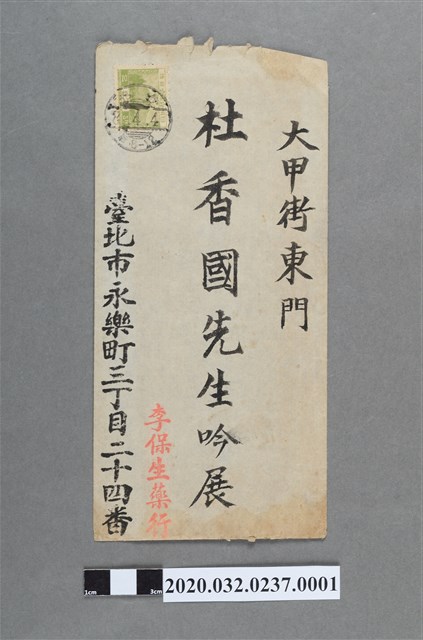 大甲街東門
杜香國先生吟展
李保生藥行
臺北市永樂町三丁目二十四番
1cm
3cm
2020.032.0237.0001